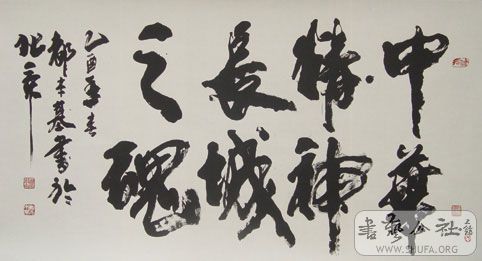 中華
精神
長城
之魂
乙酉年春
都本基書於
北京
書藝公社
WWW.SHUFA.ORG